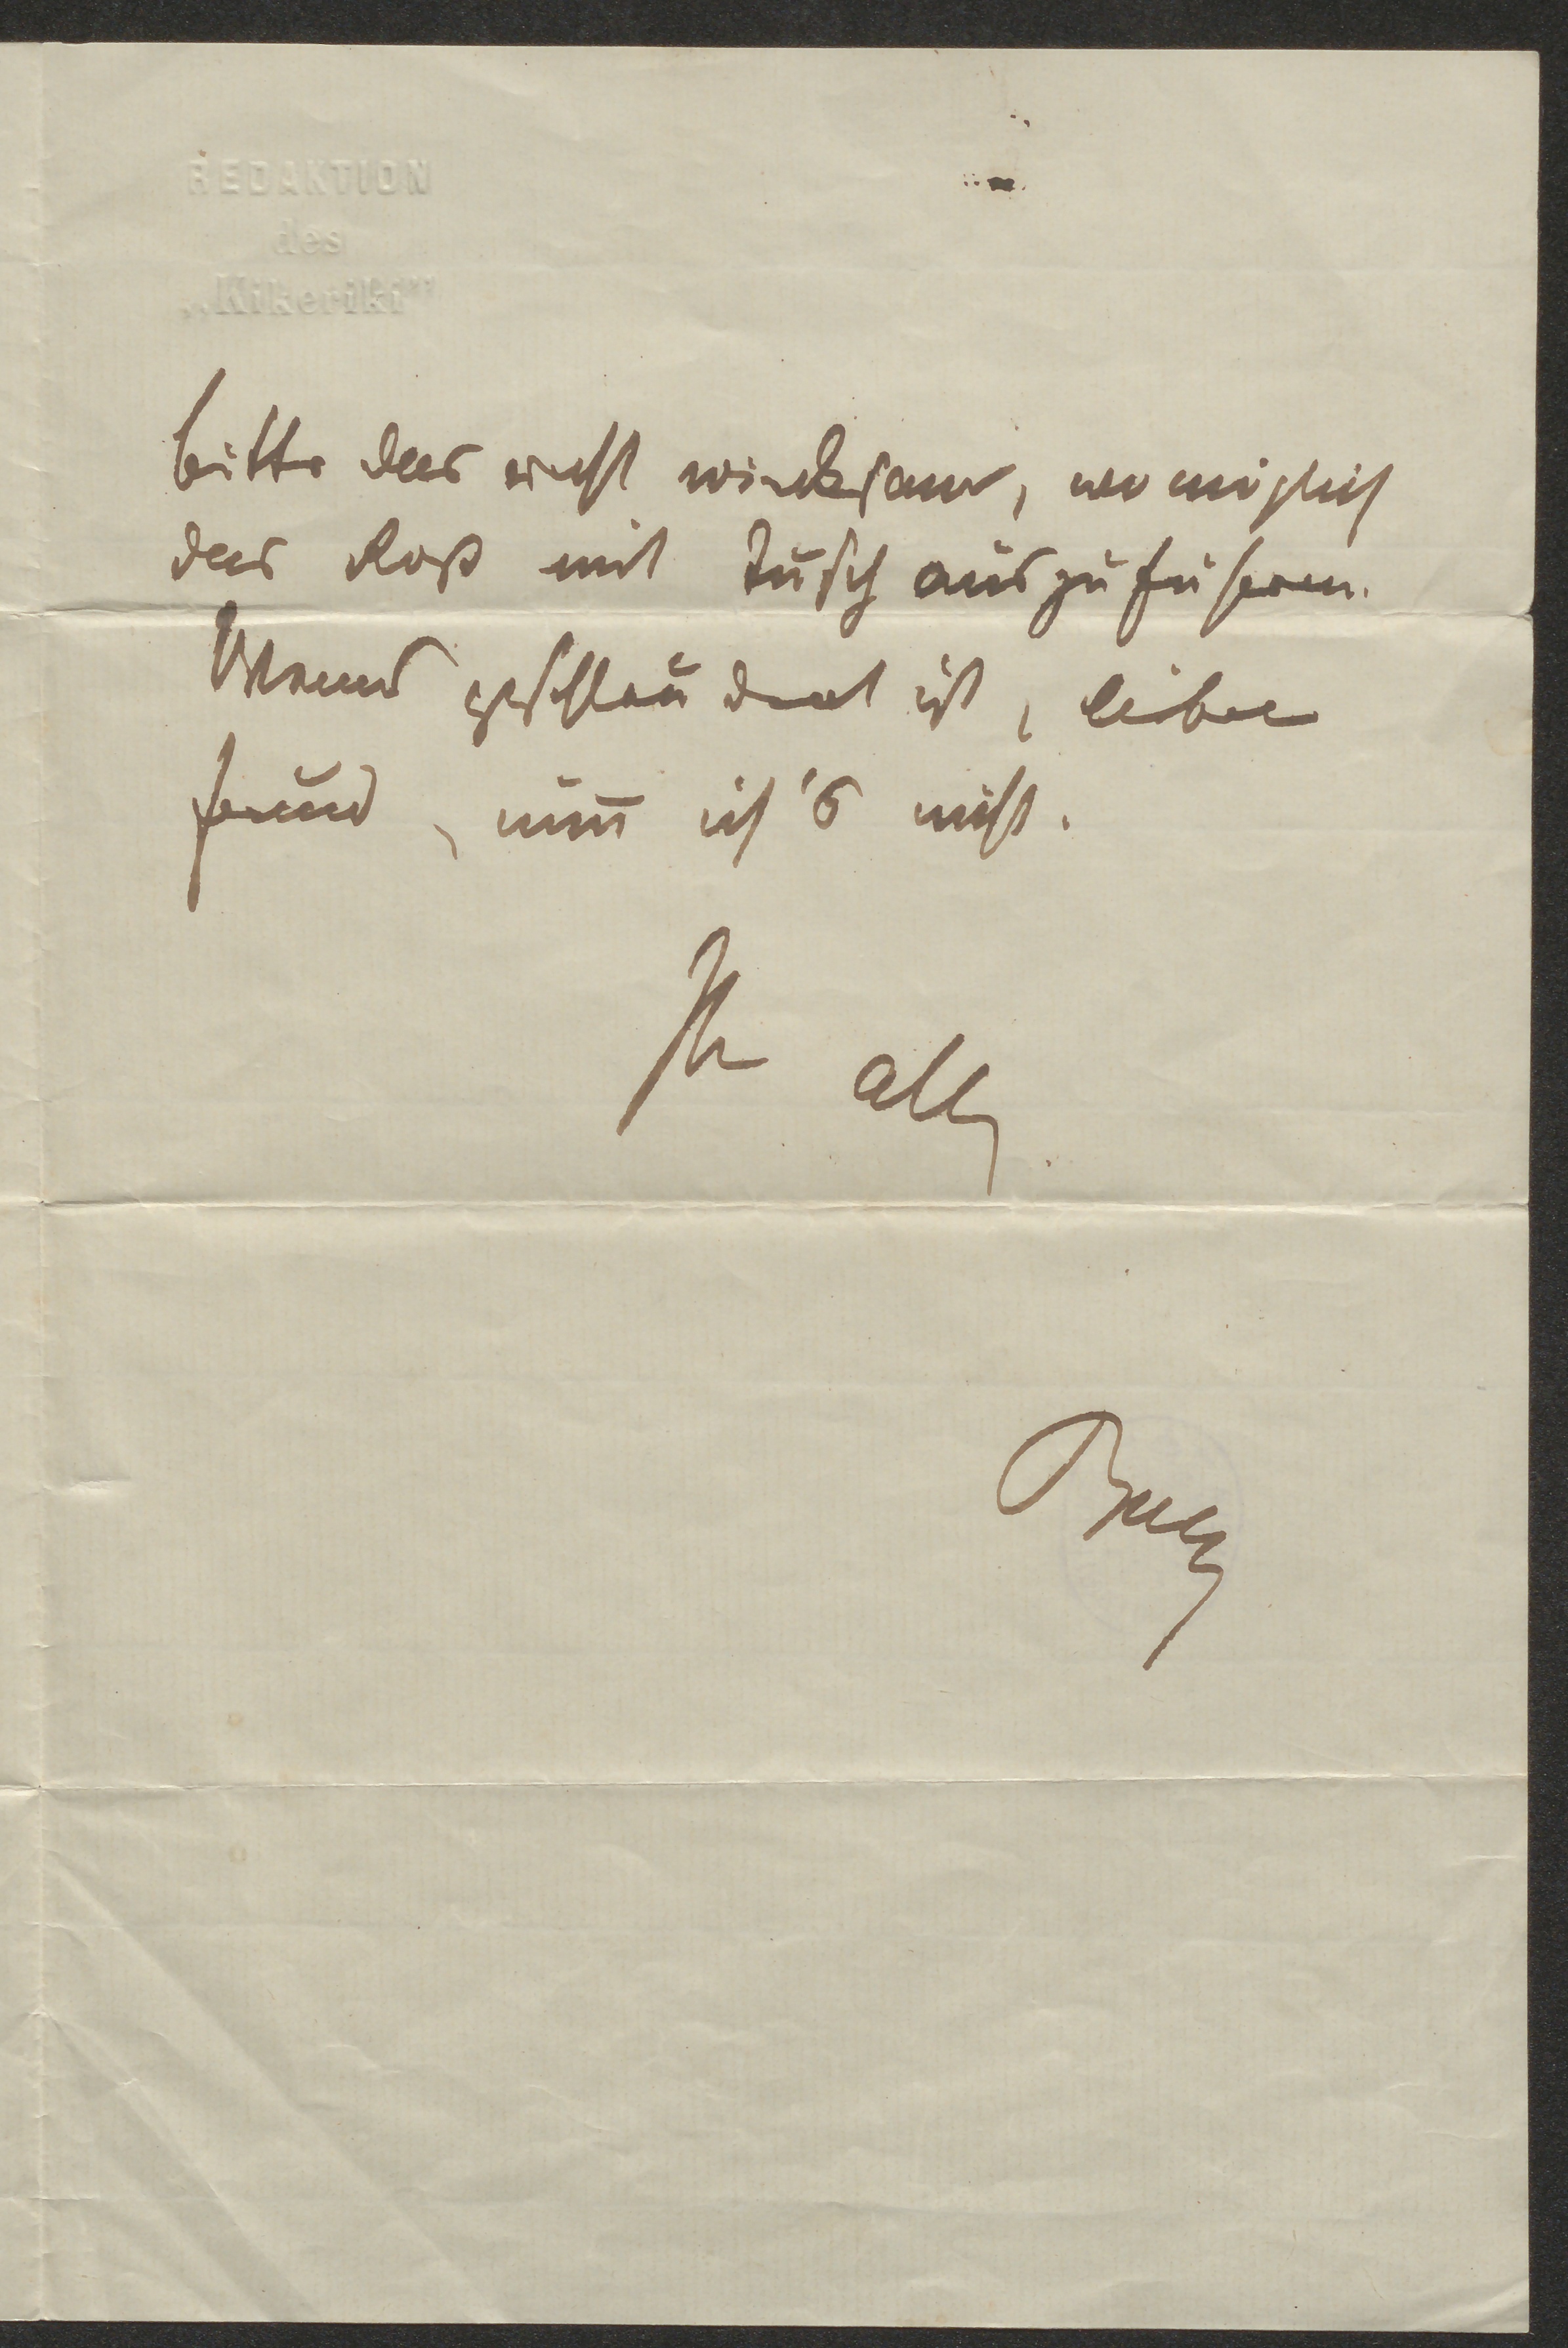 REDAKTION
des
„Kikeriki"
bitte das recht wirksam, womöglich
das Roß mit Tusch auszuführen.
Wenns geschleudert ist, lieber
Freund, nimm ich's nicht.
Ihr alter